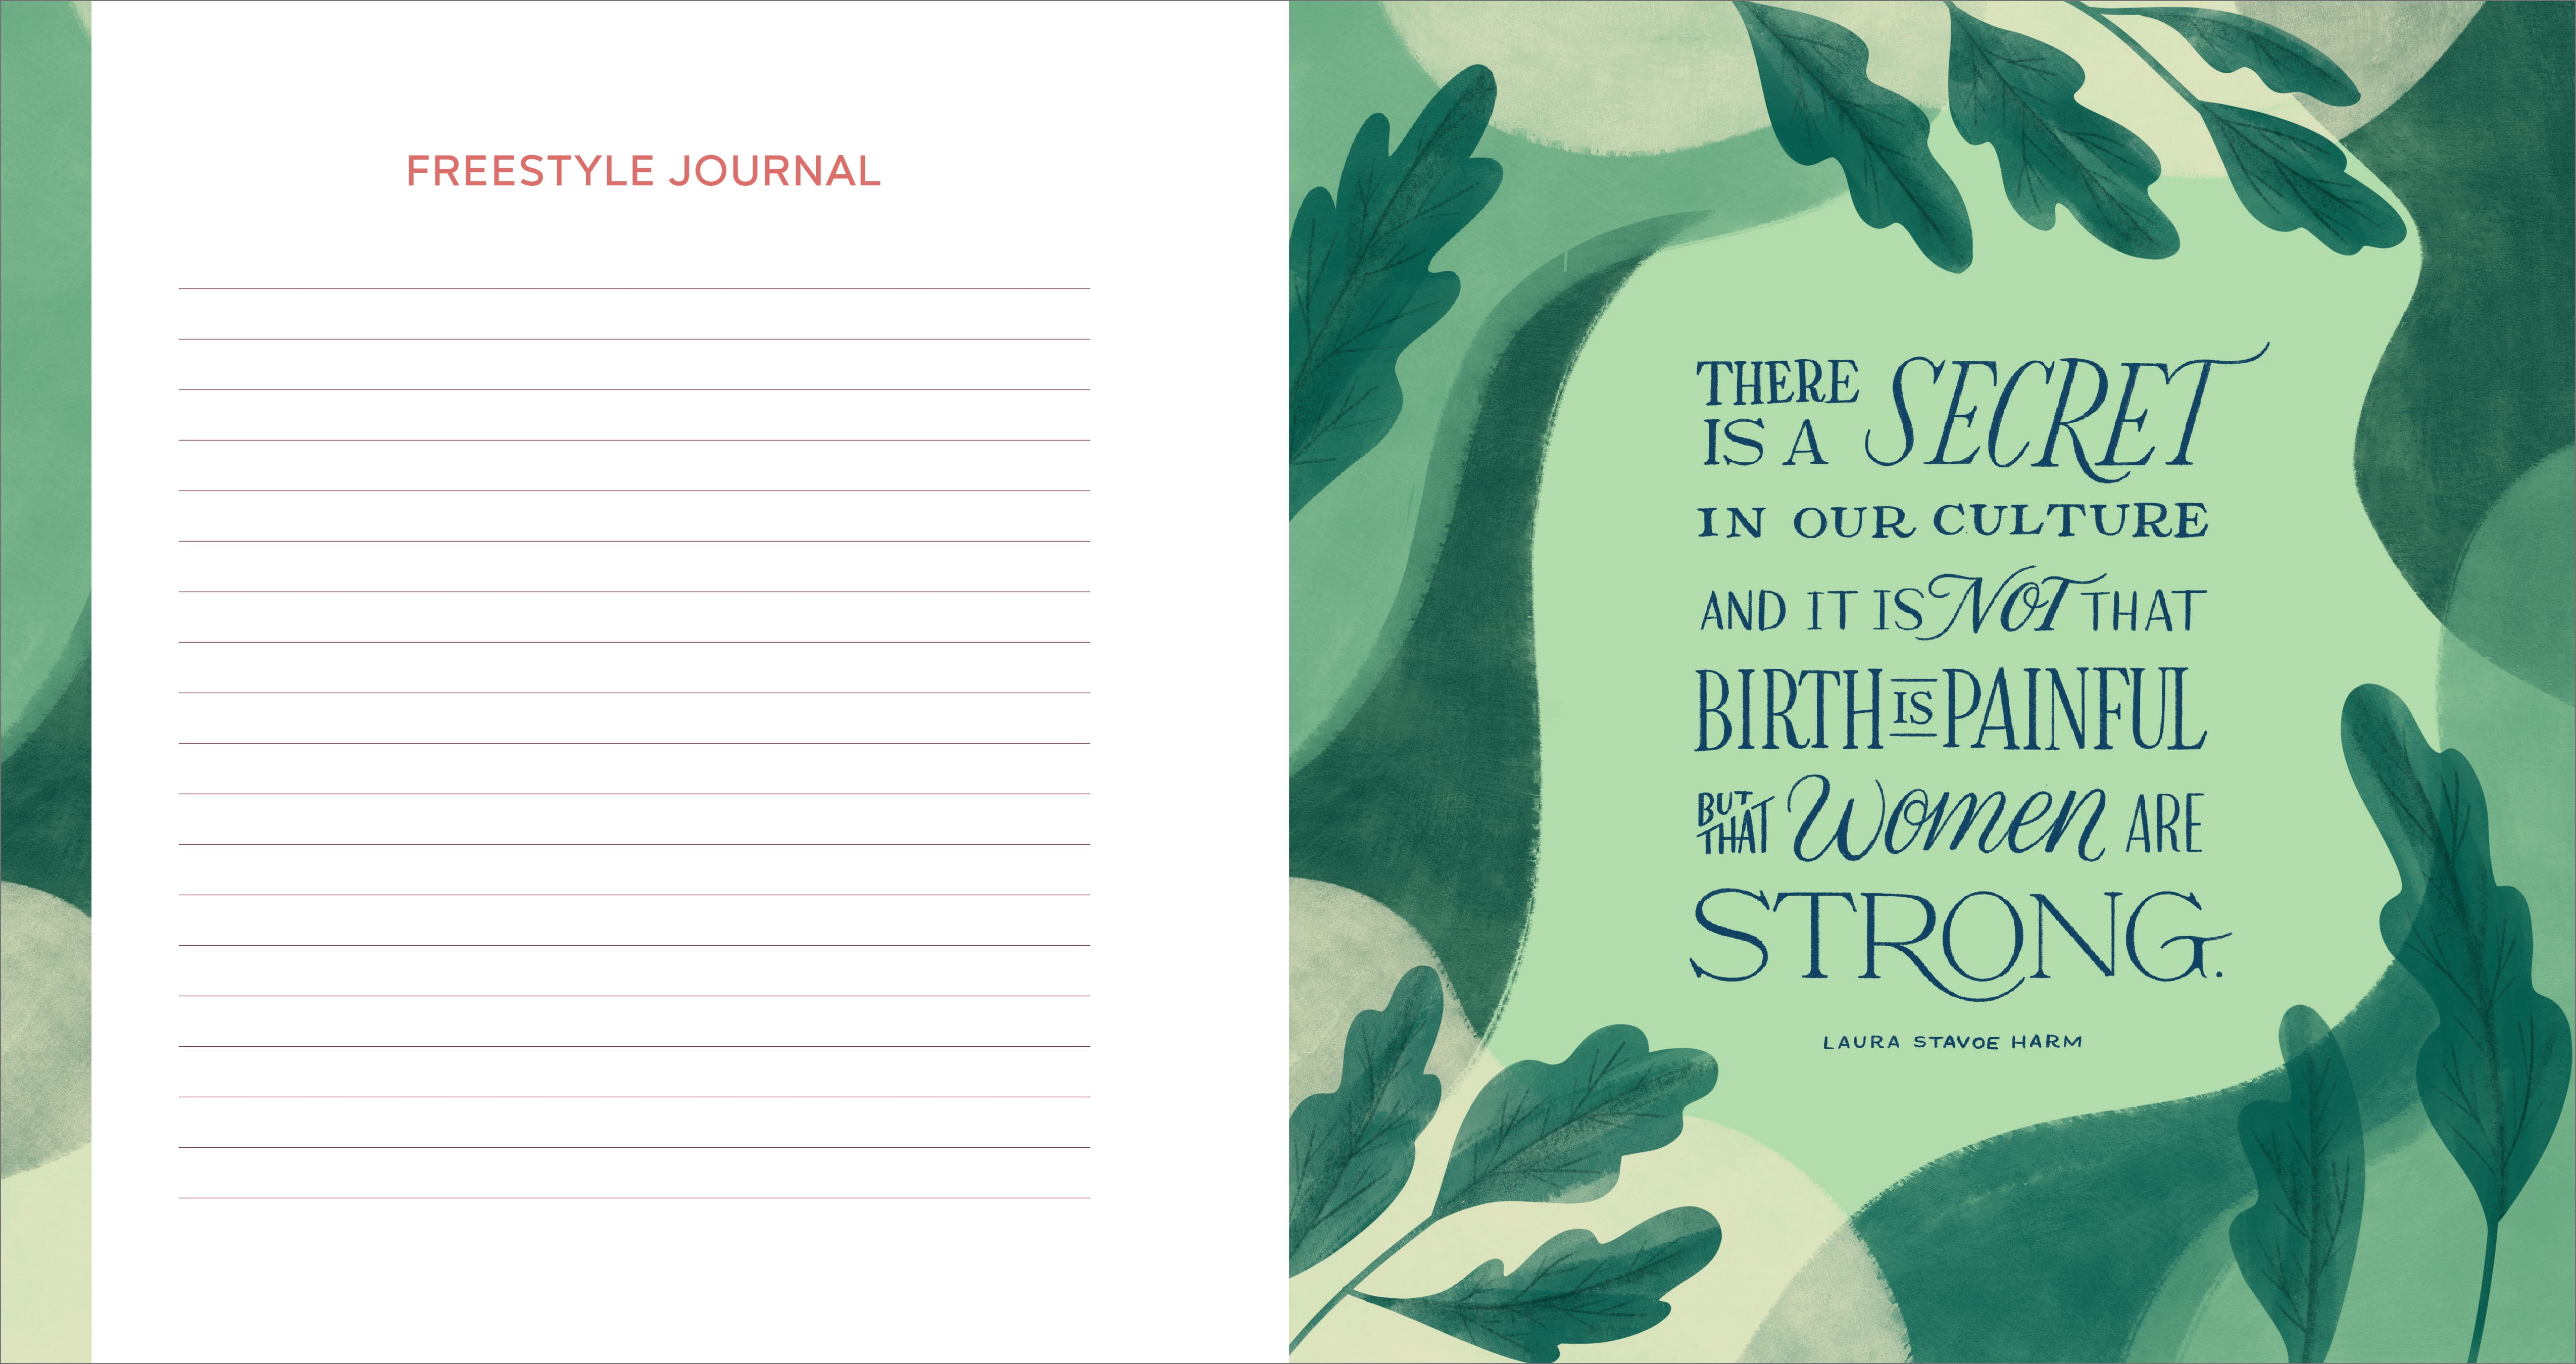 FREESTYLE JOURNAL
THERE IS A SECRET
IN OUR CULTURE
AND IT IS NOT THAT
BIRTH IS PAINFUL
BUT THAT Women ARE
STRONG.
LAURA STAVOE HARM